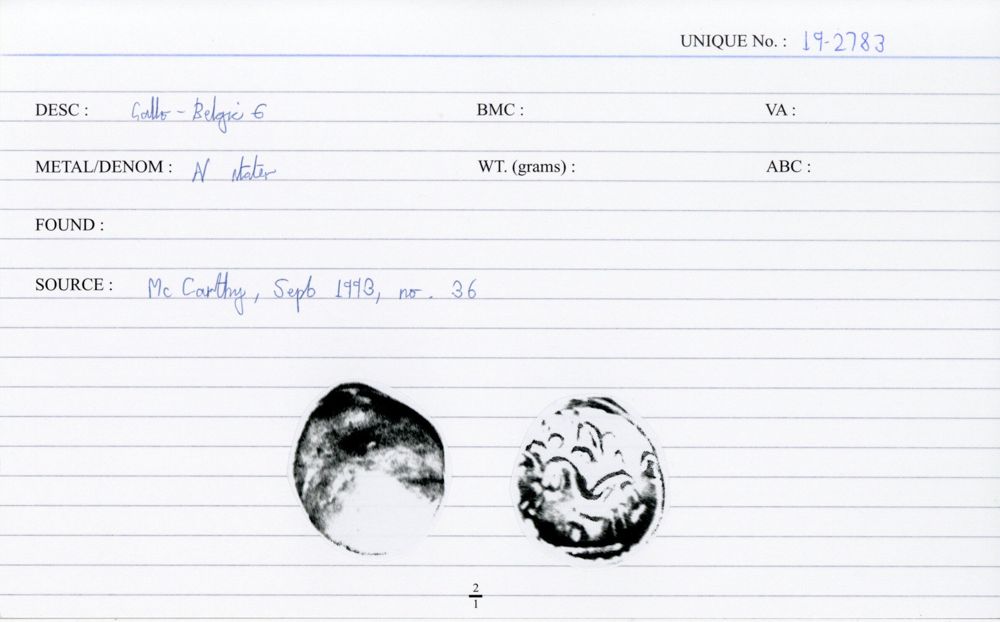 UNIQUE No. : 19-2783
DESC : Gallo-Belgic E BMC : VA :
METAL/DENOM : N stater WT. (grams) : ABC :
FOUND :
SOURCE : Mc Carthy, Sept 1993, no. 36
2
1